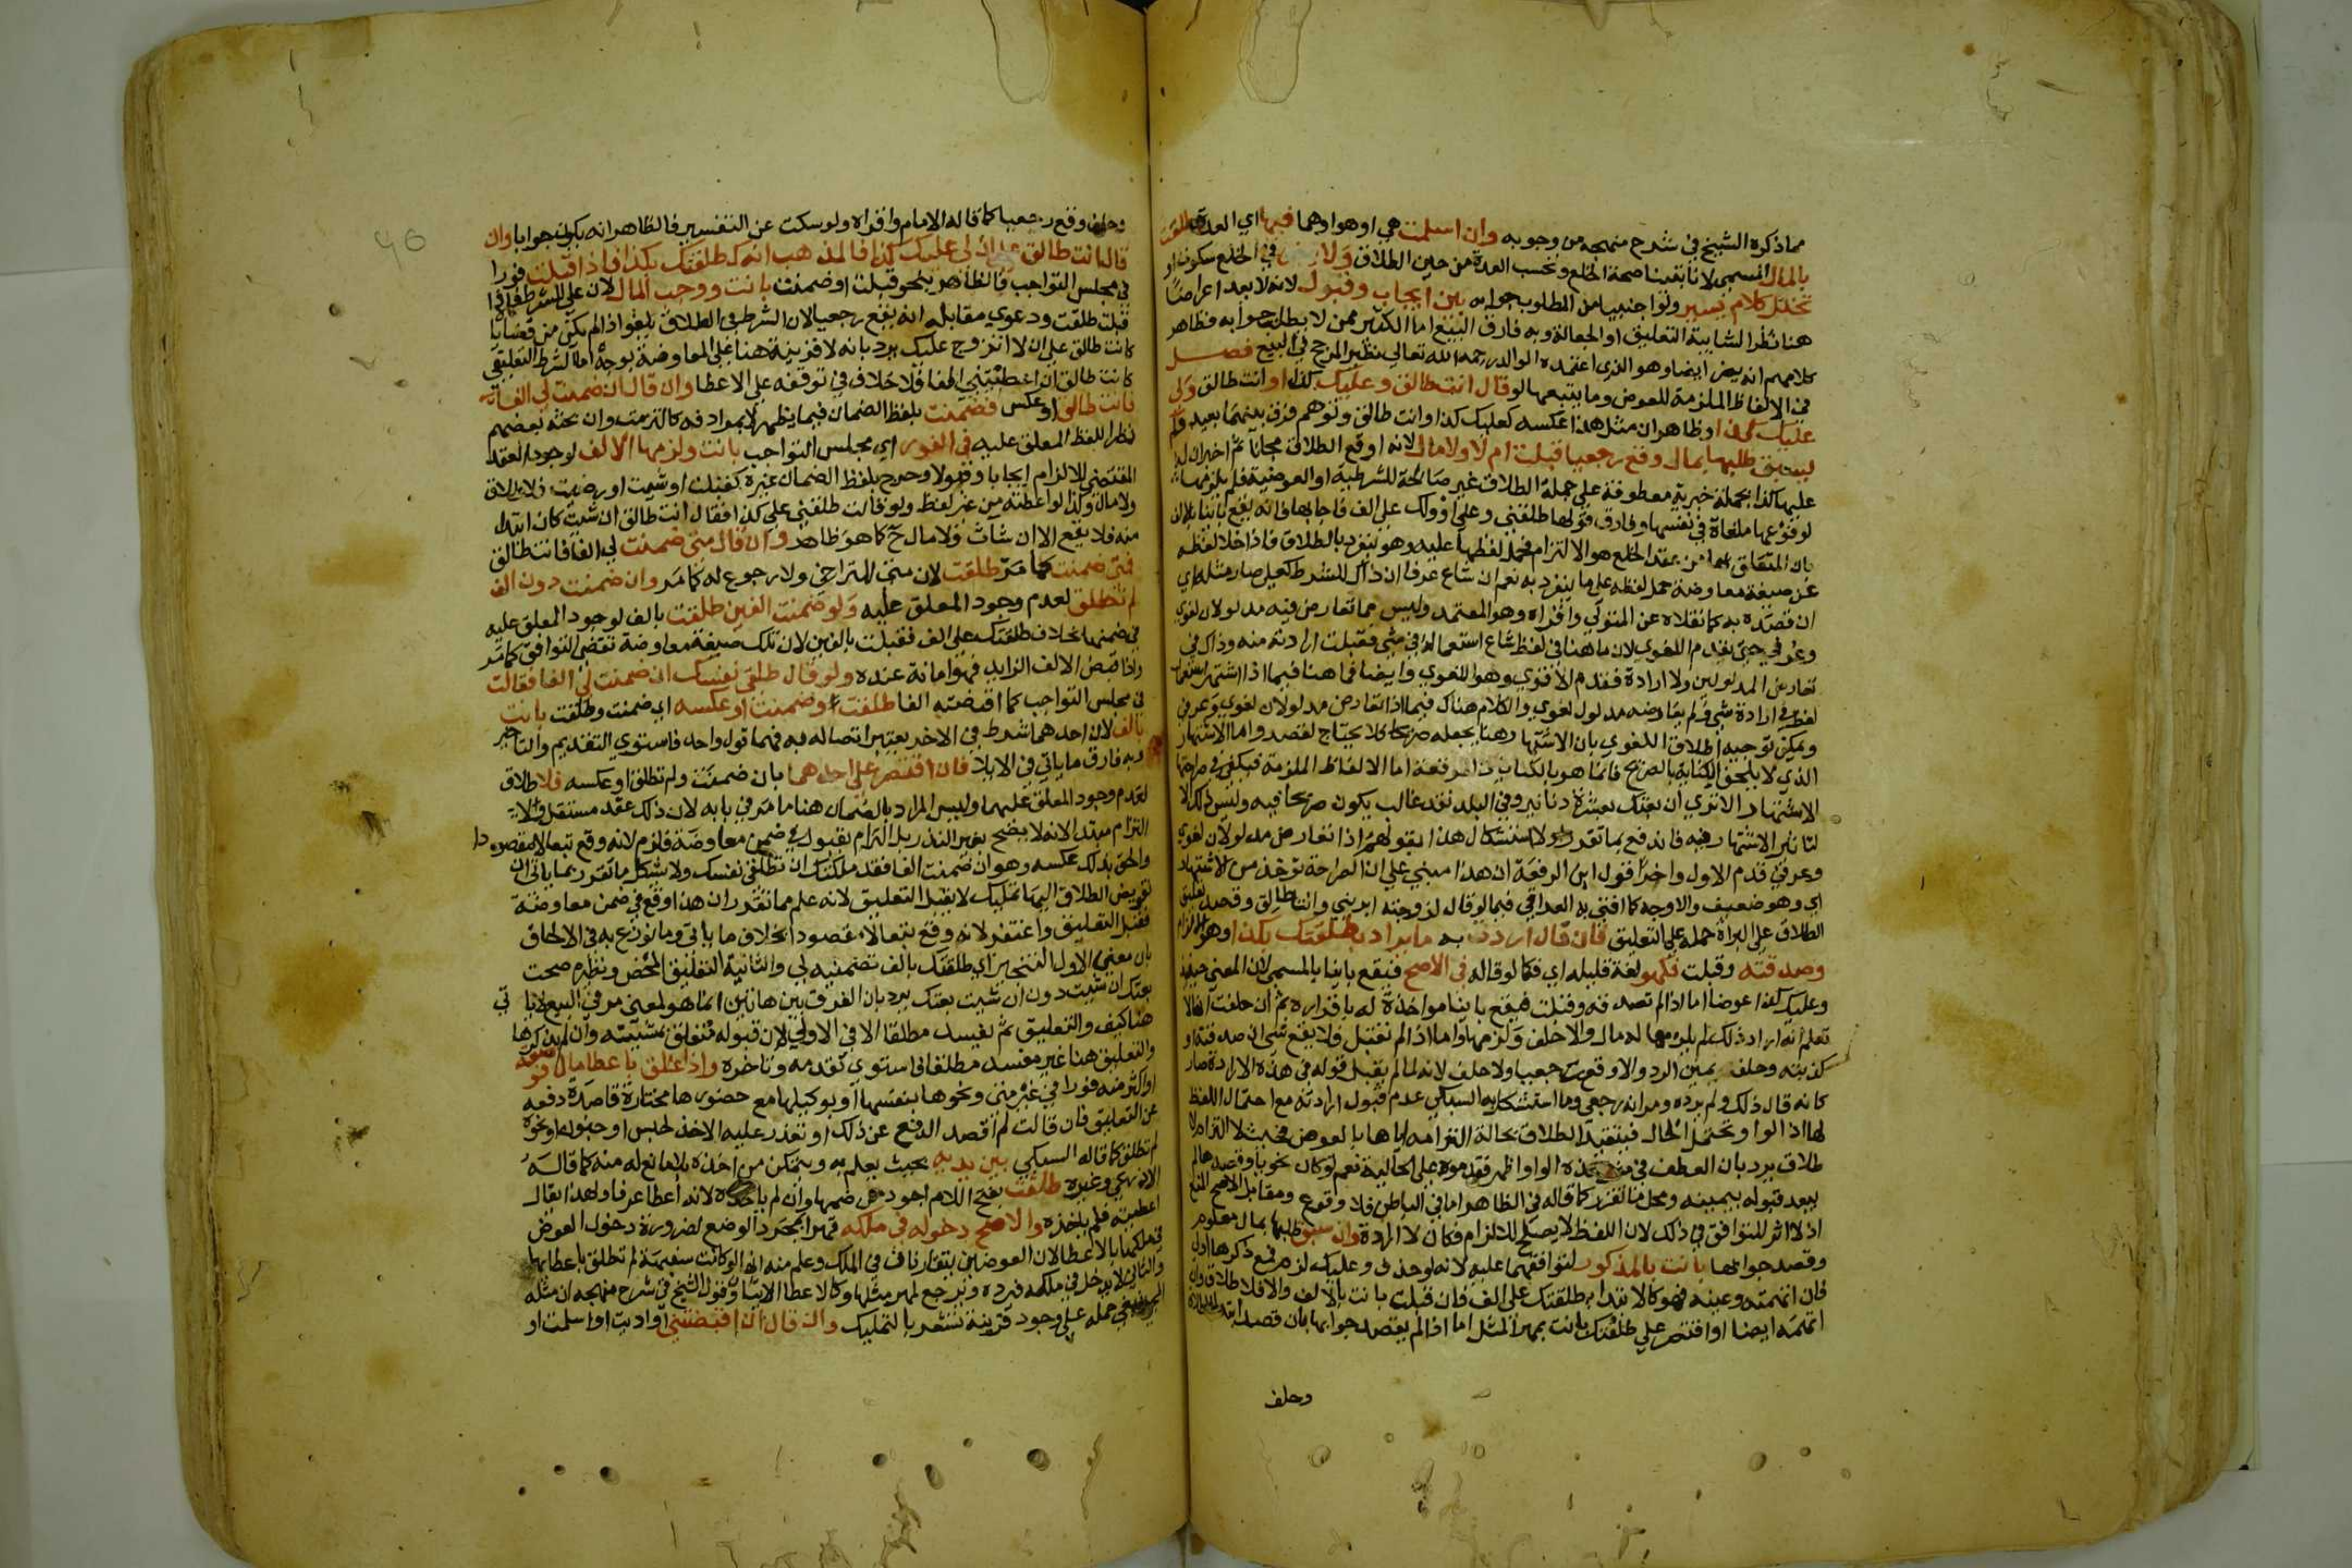 مما ذكره الشيخ في شرح منهجه من وجوبه وان اسلمت هي او هو او هما فيها اي العدة طلقت
بالمال المسمى لانا تبينا صحة الخلع وتحسب العدة من حين الطلاق ولا يضر في الخلع سكوت او
تخلل كلام يسير ولو اجنبيا من المطلوب جوابه بين ايجاب وقبول لانه لا يعد اعراضا
هنا نظرا لشايبة التعليق او الجعالة وبه فارق البيع اما الكثير ممن لا يطلب جوابه فظاهر
كلامهم انه يضر ايضا وهو الذي اعتمده الوالد رحمه الله تعالى نظير المرجح في البيع فصل
في الالفاظ الملزمة للعوض وما يتبعها لو قال انت طالق وعليك كذا او انت طالق ولي
عليك كذا وظاهر ان مثل هذا عكسه كعليك كذا وانت طالق وتوهم فرق بينهما بعيد ولم
يسبق طلبها بمال وقع رجعيا قبلت ام لا ولا مال لانه اوقع الطلاق مجانا ثم اخبر ان له
عليها كذا بجملة خبرية معطوفة على جملة الطلاق غير صالحة للشرطية او العوضية فلم يلزمها
لوقوعها ملغاة في نفسها وفارق قولها طلقني وعلي او ولك علي الف فاجابها فانه يقع باينا بالالف
بان المتعلق بها من عقد الخلع هو الالتزام فحمل لفظها عليه وهو ينفرد بالطلاق فاذا خلا لفظه
عن صيغة معاوضة حمل لفظه على ما ينفرد به نعم ان شاع عرفا ان ذاك للشرط كعلي صار مثله اي
ان قصده به كما نقلاه عن المتولي واقراه وهو المعتمد وليس مما تعارض فيه مدلولان لغوي
وعرفي حتى يقدم اللغوي لان ما هنا في لفظ شاع استعماله في شي فقبلت ارادته منه وذاك في
تعارض المدلولين ولا ارادة فقدم الاقوى وهو اللغوي وايضا فما هنا فيما اذا اشتهر استعمال
لفظ في ارادة شي ولم يعارضه مدلول لغوي والكلام هناك فيما اذا تعارض مدلولان لغوي وعرفي
ويمكن توجيه اطلاق اللغوي بان الاشتهار هنا يجعله صريحا فلا يحتاج لقصد واما الاشتهار
الذي لا يلحق الكناية بالصريح فانما هو بالكنايات الموقعة اما الالفاظ الملزمة فيكفي في صراحتها
الاشتهار الا ترى ان بعتك بعشرة دنانير وفي البلد نقد غالب يكون صريحا فيه وليس ذلك الا
لتاثير الاشتهار فيه فاندفع بما تقرر ولا استشكال هذا بقولهم اذا تعارض مدلولان لغوي
وعرفي قدم الاول واخذ قول ابن الرفعة ان هذا مبني على ان الصراحة تؤخذ من الاشتهار
اي وهو ضعيف والاوجه كما افتى به العراقي فيما لو قال لزوجته ابريني وانت طالق وقصد تعليق
الطلاق على البراة حمله على التعليق فان قال اردت به ما يراد بطلقتك بكذا وهو الالزام
وصدقته وقبلت فكهو لغة قليلة اي فكما لو قاله في الاصح فيقع باينا بالمسمى لان المعنى حينئذ
وعليك كذا عوضا اما اذا لم تصدقه وقبلت فيقع باينا مواخذة له باقراره ثم ان حلفت انها لا
تعلم انه اراد ذلك لم يلزمها له مال والا حلف ولزمها واما اذا لم تقبل فلا يقع شي ان صدقته او
كذبته وحلف يمين الرد والا وقع رجعيا ولا حلف لانه لما لم يقبل قوله في هذه الارادة صار
كانه قال ذلك ولم يرده ومر انه رجعي وما استشكل به السبكي عدم قبول ارادته مع احتمال اللفظ
لها اذ الواو تحتمل الحال فيتقيد الطلاق بحالة التزامه اياها بالعوض فحيث لا التزام لا
طلاق يرد بان العطف في مثل هذه الواو اظهر فقدموه على الحالية نعم لو كان نحويا وقصدها لم
يبعد قبوله بيمينه ومحل ما تقرر كما قاله في الظاهر اما في الباطن فلا وقوع ومقابل الاصح المنع
اذ لا اثر للتوافق في ذلك لان اللفظ لا يصلح للالزام فكان لا ارادة وان سبق طلبها بمال معلوم
وقصد جوابها بانت بالمذكور لتوافقهما عليه لانه لو حذف وعليك لزم فمع ذكرها اولى
فان ابهمته وعينه فهو كالابتداء بطلقتك على الف فان قبلت بانت بالالف والا فلا طلاق وان
ابهمه ايضا او اقتصر على طلقتك بانت بمهر المثل اما اذا لم يقصد جوابها بان قصد ابتداء الطلاق
وحلف
وحلف وقع رجعيا كما قاله الامام واقراه ولو سكت عن التفسير فالظاهر انه يكون جوابا وان
قال انت طالق على ان لي عليك كذا فالمذهب انه كطلقتك بكذا فاذا قبلت فورا
في مجلس التواجب فالظاهر بنحو قبلت او ضمنت بانت ووجب المال لان على للشرط فاذا
قبلت طلقت ودعوى مقابله انه يقع رجعيا لان الشرط في الطلاق يلغو اذا لم يكن من قضاياه
كانت طالق على ان لا اتزوج عليك يرد بانه لا قرينة هنا على المعاوضة بوجه اما الشرط التعليقي
كانت طالق ان اعطيتني الفا فلا خلاف في توقفه على الاعطا وان قال ان ضمنت لي الفا
فانت طالق او عكس فضمنت بلفظ الضمان فيما يظهر لا بمرادفه كالتزمت وان بحثه بعضهم
نظرا للفظ المعلق عليه في الفور اي مجلس التواجب بانت ولزمها الالف لوجود العقد
المقتضي للالزام ايجابا وقبولا وخرج بلفظ الضمان غيره كقبلت او شيت او رضيت فلا طلاق
ولا مال وكذا لو اعطته من غير لفظ ولو قالت طلقني على كذا فقال انت طالق ان شيت كان ابتدا
منه فلا يقع الا ان شات ولا مال ح كما هو ظاهر وان قال متى ضمنت لي الفا فانت طالق
فمتى ضمنت كما مر طلقت لان متى للتراخي ولا رجوع له كما مر وان ضمنت دون الف
لم تطلق لعدم وجود المعلق عليه ولو ضمنت الفين طلقت بالف لوجود المعلق عليه
في ضمنهما بخلاف طلقتك على الف فقبلت بالفين لان تلك صيغة معاوضة تقتضي التوافق كما مر
واذا قبض الالف الزايد فهو امانة عنده ولو قال طلقي نفسك ان ضمنت لي الفا فقالت
في مجلس التواجب كما اقتضته الفا طلقت وضمنت او عكسه اي ضمنت وطلقت بانت
بالف لان احدهما شرط في الاخر يعتبر اتصاله به فهما قول واحد فاستوى التقديم والتاخير
وبه فارق ما ياتي في الايلا فان اقتصر على احدهما بان ضمنت ولم تطلق او عكسه فلا طلاق
لعدم وجود المعلق عليهما وليس المراد بالضمان هنا ما مر في بابه لان ذلك عقد مستقل ولا
التزام مبتدا لانه لا يصح بغير النذر بل التزام بقبول في ضمن معاوضة فلزم لانه وقع تبعا لا مقصودا
والحق بذلك عكسه وهو ان ضمنت الفا فقد ملكتك ان تطلقي نفسك ولا يشكل ما تقرر بما ياتي ان
تفويض الطلاق اليها تمليك لا يقبل التعليق لانه علم مما تقرر ان هذا وقع في ضمن معاوضة
فقبل التعليق واغتفر لانه وقع تبعا لا مقصودا بخلاف ما ياتي وما نوزع به في الالحاق
بان معنى الاول التنجيز اي طلقتك بالف تضمنيه لي والثانية التعليق المحض ونظيره صحت
بعتك ان شيت دون ان شيت بعتك يرد بان الفرق بين هاتين انما هو لمعنى مر في البيع لا ياتي
هنا كيف والتعليق ثم يفسد مطلقا الا في الاولى لان قبوله متعلق بمشيئته وان لم يذكرها
والتعليق هنا غير مفسد مطلقا فاستوى تقدمه وتاخره واذا علق باعطا مال فوضعته
او اكثر منه فورا في غير متى ونحوها بنفسها او بوكيلها مع حضورها مختارة قاصدة دفعه
عن التعليق فان قالت لم اقصد الدفع عن ذلك او تعذر عليه الاخذ لحبس او جنون او نحوه
لم تطلق كما قاله السبكي بين يديه بحيث يعلم به ويتمكن من اخذه بلا مانع له منه كما قاله
الاذرعي وغيره طلقت بفتح اللام اجود من ضمها وان لم ياخذه لانه اعطا عرفا ولهذا يقال
اعطيته فلم ياخذه والاصح دخوله في ملكه قهرا بمجرد الوضع لضرورة دخول العوض
في ملكها بالاعطا لان العوضين يتقارنان في الملك وعلم منه انها لو كانت سفيهة لم تطلق باعطايها
والثاني لا يدخل في ملكه فيرده ويرجع لمهر مثلها وكالاعطا الايتا وقول الشيخ في شرح منهجه ان مثله
المجي ينبغي حمله على وجود قرينة تشعر بالتمليك وان قال ان اقبضتني او اديت او اسلمت او